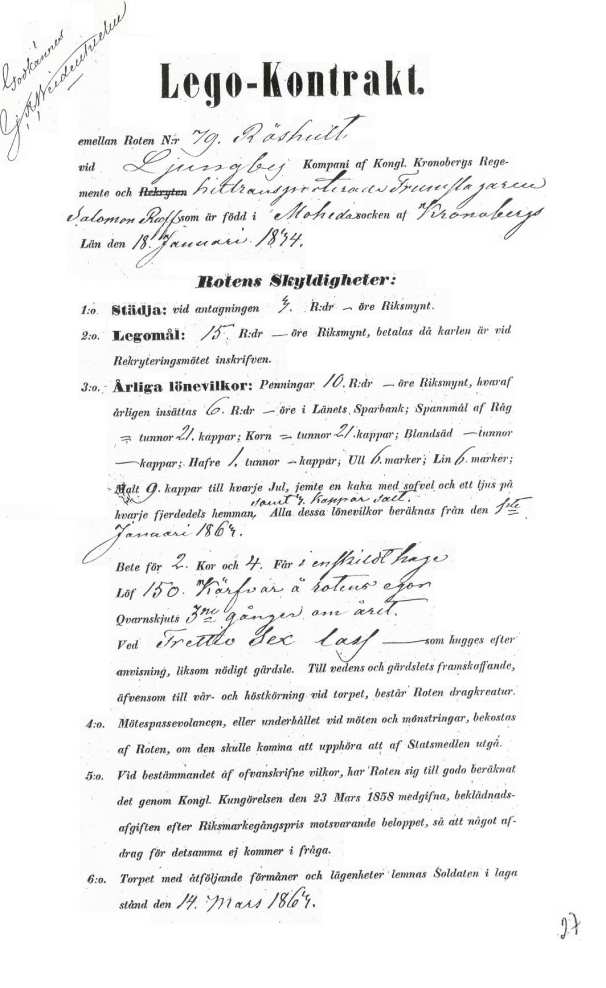 Godkännes
Lego-Kontrakt.
emellan Roten N:r 79. Röshult
vid Ljungby Kompani af Kongl. Kronobergs Rege-
mente och Rekryten hittransporterade Trumslagaren
Salomon Raff som är född i Moheda socken af Kronobergs
Län den 18. Januari 1844.
Rotens Skyldigheter:
1:o Städja: vid antagningen R:dr — öre Riksmynt.
2:o. Legomål: 15. R:dr — öre Riksmynt, betalas då karlen är vid
Rekryteringsmötet inskrifven.
3:o. Årliga lönevilkor: Penningar 10. R:dr — öre Riksmynt, hvaraf
årligen insättas 6. R:dr — öre i Länets Sparbank; Spannmål af Råg
= tunnor 21. kappar; Korn = tunnor 21. kappar; Blandsäd — tunnor
— kappar; Hafre 1. tunnor — kappar; Ull 6. marker; Lin 6. marker;
Malt 9. kappar till hvarje Jul, jemte en kaka med sofvel och ett ljus på
samt kappar salt.
hvarje fjerdedels hemman, Alla dessa lönevilkor beräknas från den 1ste
Januari
Bete för 2. Kor och 4. Får i enskildt hage
Löf 150. Kärfvar å rotens egor
Qvarnskjuts 3ne gånger om året.
Ved Trettio Sex lass — som hugges efter
anvisning, liksom nödigt gärdsle. Till vedens och gärdslets framskaffande,
äfvensom till vår- och höstkörning vid torpet, består Roten dragkreatur.
4:o. Mötespassevolancen, eller underhållet vid möten och mönstringar, bekostas
af Roten, om den skulle komma att upphöra att af Statsmedlen utgå.
5:o. Vid bestämmandet af ofvanskrifne vilkor, har Roten sig till godo beräknat
det genom Kongl. Kungörelsen den 23 Mars 1858 medgifna, beklädnads-
afgiften efter Riksmarkegångspris motsvarande beloppet, så att något af-
drag för detsamma ej kommer i fråga.
6:o. Torpet med åtföljande förmåner och lägenheter lemnas Soldaten i laga
stånd den 14. Mars
27